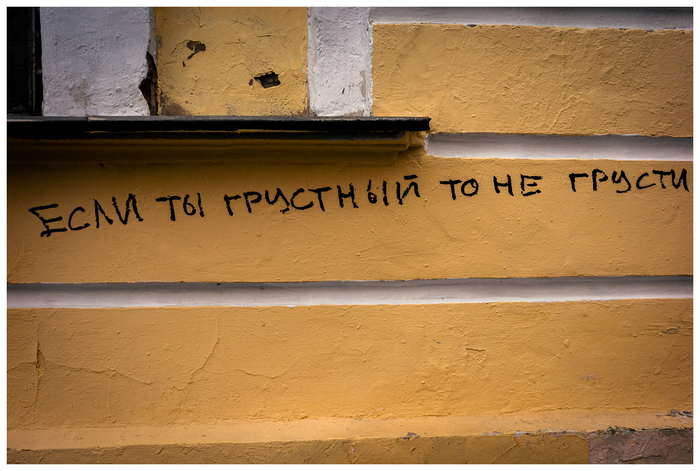 Если ты грустный то не грусти